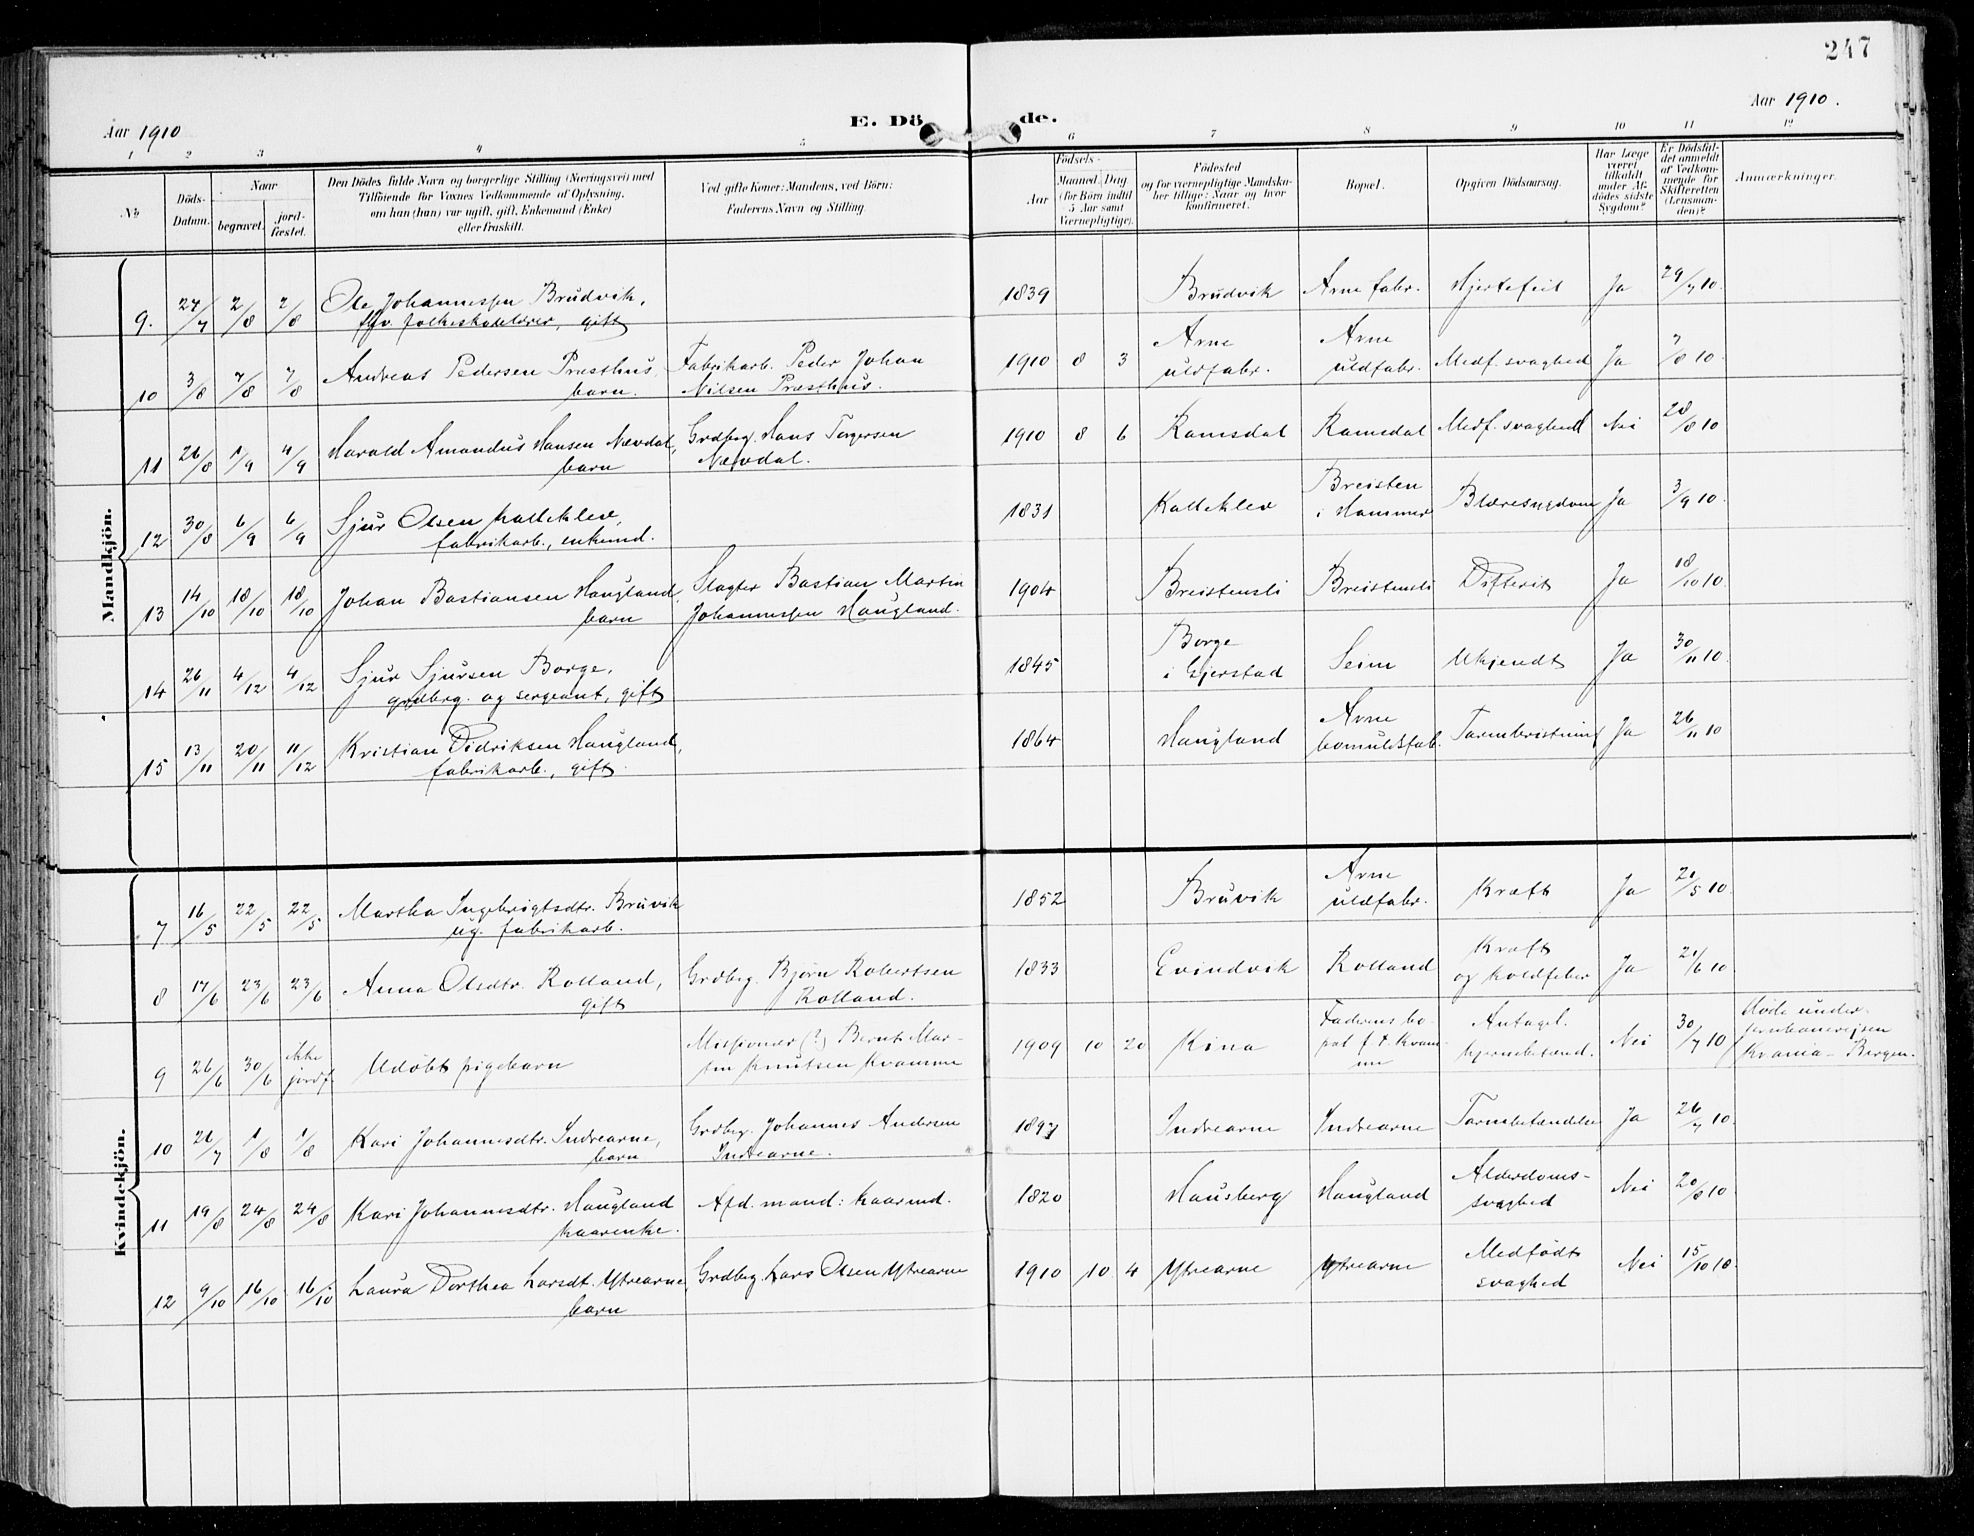 247
Aar 1910
E. Dö
de.
Aar 1910.
1 2 3 4 5 6 7 8 9 10 11 12
№
Döds-
Datum.
Naar
begravet.
jord-
fæstet.
Den Dödes fulde Navn og borgerlige Stilling (Næringsvei) med
Tilföiende for Voxnes Vedkommende af Oplysning,
om han (hun) var ugift, gift, Enkemand (Enke)
eller fraskilt.
Ved gifte Koner: Mandens, ved Börn:
Faderens Navn og Stilling.
Födsels-
Aar
Maaned. Dag
(for Börn indtil
5 Aar samt
Værnepligtige).
Födested
og for værnepligtige Mandska-
ber tillige: Naar og hvor
konfirmeret.
Bopæl.
Opgiven Dödsaarsag.
Har Læge
været
tilkaldt
under Af-
dödes sidste
Sygdom?
Er Dödsfal-
det anmeldt
af Vedkom-
mende for
Skifteretten
(Lensman-
den)?
Anmærkninger.
Mandkjön.
9. 27/7 2/8 2/8 Ole Johannessen Brudvik, 1839 Brudvik Arne fabr. Hjertefeil Ja 29/7 10.
fhv. folkeskolelærer, gift
10 3/8 7/8 7/8 Andreas Pedersen Præsthus, Fabrikarb. Peder Johan 1910 8 3 Arne Arne Medf. svaghed Ja 7/8 10.
barn. Nilsen Præsthus. uldfabr. uldfabr.
11 26/8 1/9 4/9 Harald Amandus Hansen Nævdal, Grdbrg. Hans Torgersen 1910 8 6 Ramsdal Ramsdal Medf. svaghed Nei 28/8 10
barn Nævdal.
12 30/8 6/9 6/9 Sjur Olsen Kalleklev, 1831 Kalleklev Breisten Blæresygdom Ja 3/9 10.
fabrikarb., enkemd. i Hammer
13 14/10 18/10 18/10 Johan Bastiansen Haugland, Slagter Bastian Martin 1904 Breistensli Breistensli Difterit Ja 18/10 10.
barn Johannessen Haugland.
14 26/11 4/12 4/12 Sjur Sjursen Borge, 1845 Borge Seim Ukjendt Ja 30/11 10.
grdbrg. og sergeant, gift i Gjerstad
15 13/11 20/11 11/12 Kristian Didriksen Haugland, 1864 Haugland Arne Tarmbristning Ja 26/11 10
fabrikarb., gift. bomuldsfab.
Kvindekjön.
7 16/5 22/5 22/5 Martha Ingebrigtsdtr. Bruvik 1852 Bruvik Arne Kræft Ja 21/5 10.
ug. fabrikarb. uldfabr.
8 17/6 23/6 23/6 Anna Olsdtr. Rolland, Grdbrg. Bjørn Robertsen 1833 Evindvik Rolland Kræft Ja 21/6 10
gift Rolland. og koldfeber
9 26/6 30/6 ikke Udøbt pigebarn Missionær (?) Bernt Mar- 1909 10 20 Kina Faderens bo- Antagel. Nei 30/7 10 Døde under
jordf. tin Knutsen Kvamme pæl f. t. Kvam- hjernebetænd. jernbanereisen
me Krania - Bergen.
10 21/7 1/8 1/8 Kari Johannesdtr. Indrearne, Grdbrg. Johannes Andersen 1897 Indrearne Indrearne Tarmbetændelse Ja 26/7 10.
barn Indrearne.
11 19/8 24/8 24/8 Kari Johannesdtr. Haugland Afd. mand: kaarmd. 1820 Hausberg Haugland Alderdoms- Nei 20/8 10
kaarenke. svaghed
12 9/10 16/10 16/10 Laura Dorthea Larsdt. Ytrearne, Grdbrg. Lars Olsen Ytrearne 1910 10 4 Ytrearne Ytrearne Medfødt Nei 15/10 10.
barn svaghed